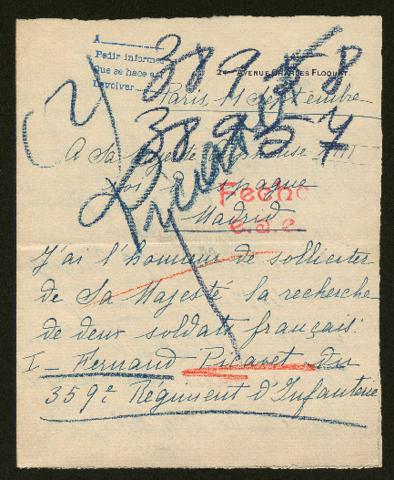 A
Pedir inform
Que se hace
Devolver
38958
24 AVENUE CHARLES FLOQUET
Paris, 11 Septembre
38957
A Sa Majesté Alphonse XIII
Roi d'Espagne
Fecho
Madrid
e.a.e
J'ai l'honneur de solliciter
de Sa Majesté la recherche
de deux soldats français:
I_ Fernand Picavet du
359e Régiment d'Infanterie